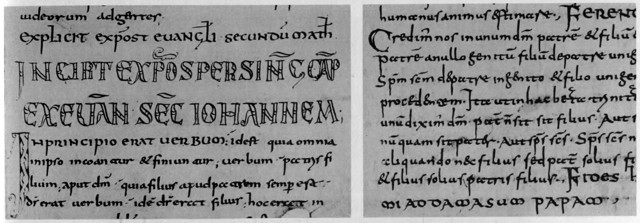 uideorum adgentes.
explicit expost euangli secundū math
INCIPIT EXPOS PERSIN CAP
EX EUAN SEC IOHANNEM;
IN PRINCIPIO ERAT UERBUM, idest quia omnia
inipso et finiuntur, uerbum patris fi
lium, aput dm quia filius apud patrem semp est
dr erat uerbum idē dr erat filius, hoc erat in
humanus animus estimare, FERENT
Credimus nos in unum dm patrē & filiū
Patrē a nullo genitū filiū de patre unig
Spm scm de patre ingenito & filio unige
procedentem. Ita ut in hac trinit
unū diximus dm pat sit filius. Aut
nunquam sit pater. Aut sps scs. Sps scs n
aliquando n& filius sed pat solius fi
& filius solius patris filius. FIDES
AD DAMASUM PAPAM